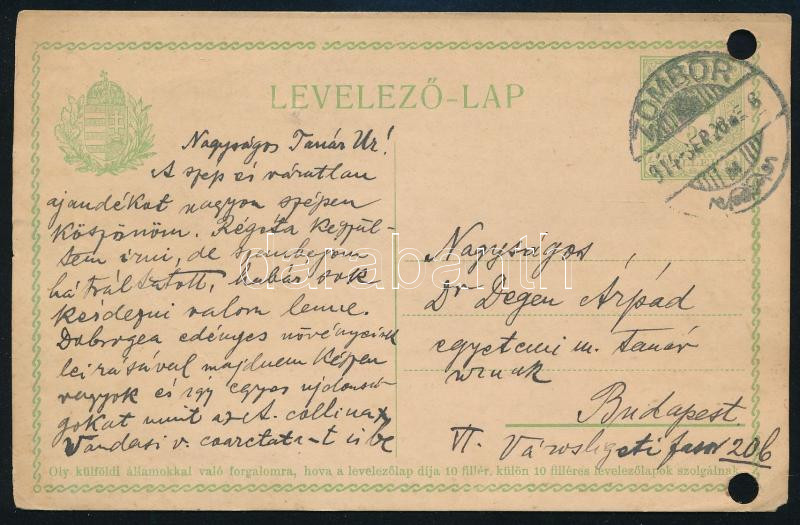 LEVELEZŐ-LAP
ZOMBOR
Nagyságos Tanár Ur!
A szép és váratlan
ajandékot nagyon szépen
köszönöm. Régóta készül-
tem irni, de szembajom
hátráltatott, habár sok
kérdezni valom lenne.
Dobrogea edényes növényeinek
leirásával majdnem készen
vagyok és igy egyes ujdonsá-
gokat mint az A. collina ×
Vandasi v. coarctata-t is be
Nagyságos,
Dr Degen Árpád
egyetemi m. tanár
urnak
Budapest.
VI. Városligeti fasor 20b
Oly külföldi államokkal való forgalomra, hova a levelezőlap díja 10 fillér, külön 10 filléres levelezőlapok szolgálnak.
darabanth